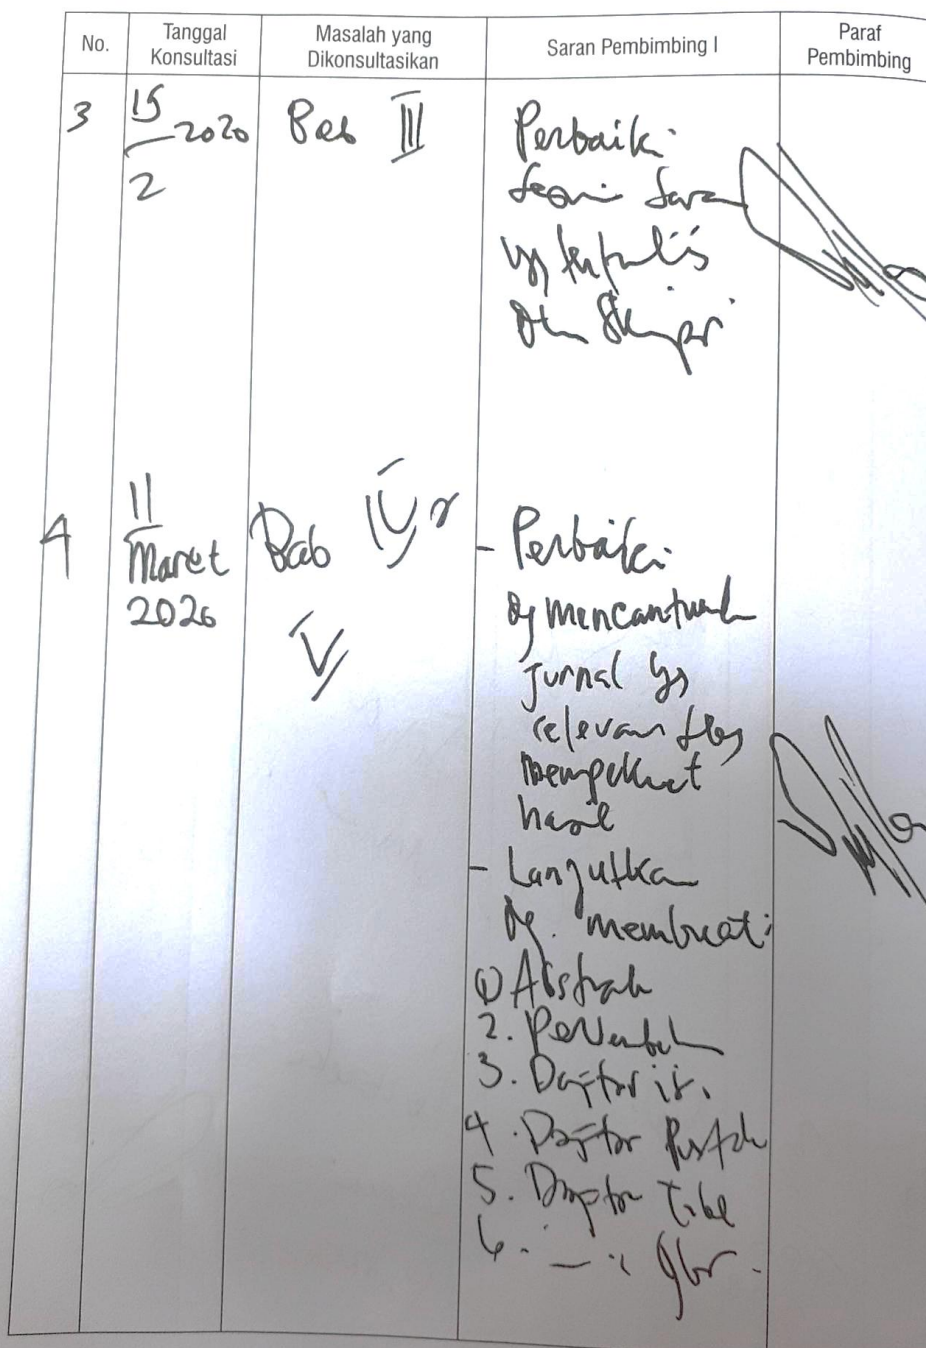 No.
Tanggal Konsultasi
Masalah yang Dikonsultasikan
Saran Pembimbing I
Paraf Pembimbing
3
15
2020
2
Bab III
Perbaiki
yg tertulis
Skripsi
4
11
Maret
2020
Bab IV
V
- Perbaiki
dg mencantumkan
jurnal yg
relevan
memperkuat
hasil
- Lanjutkan
dg. membuat:
① Abstrak
2.
3. Daftar isi.
4. Daftar Pustaka
5. Daftar Tabel
6. — " — Gbr.